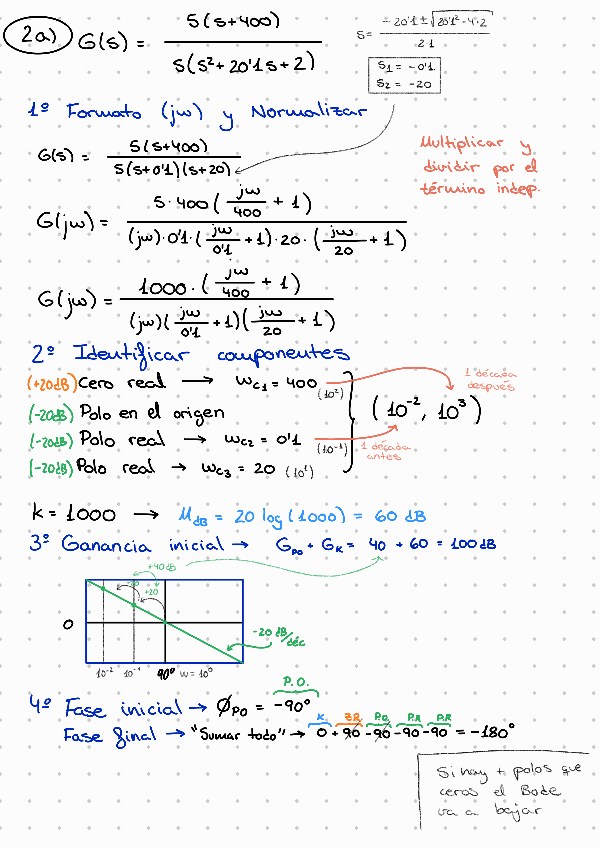 2a) G(s) = 5(s+400) / s(s²+20'1s+2)
s = -20'1 ± √(20'1² - 4·2) / 2·1
s₁ = -0'1
s₂ = -20
1º Formato (jω) y Normalizar
G(s) = 5(s+400) / s(s+0'1)(s+20)
Multiplicar y
dividir por el
término indep.
G(jω) = 5·400(jω/400 + 1) / (jω)·0'1·(jω/0'1 + 1)·20·(jω/20 + 1)
G(jω) = 1000·(jω/400 + 1) / (jω)(jω/0'1 + 1)(jω/20 + 1)
2º Identificar componentes
(+20dB) Cero real → ωc1 = 400 (10²)
1 década
después
(-20dB) Polo en el origen
(10⁻², 10³)
(-20dB) Polo real → ωc2 = 0'1 (10⁻¹)
1 década
antes
(-20dB) Polo real → ωc3 = 20 (10¹)
K = 1000 → MdB = 20 log(1000) = 60 dB
3º Ganancia inicial → Gpo + GK = 40 + 60 = 100dB
+40dB
+20
+20
0
-20 dB/déc
10⁻² 10⁻¹ 90º ω = 10⁰
P.O.
4º Fase inicial → ØPO = -90°
K. Z.R. P.O. P.R P.R
Fase final → "Sumar todo" → 0 + 90 - 90 - 90 - 90 = -180°
Si hay + polos que
ceros el Bode
va a bajar